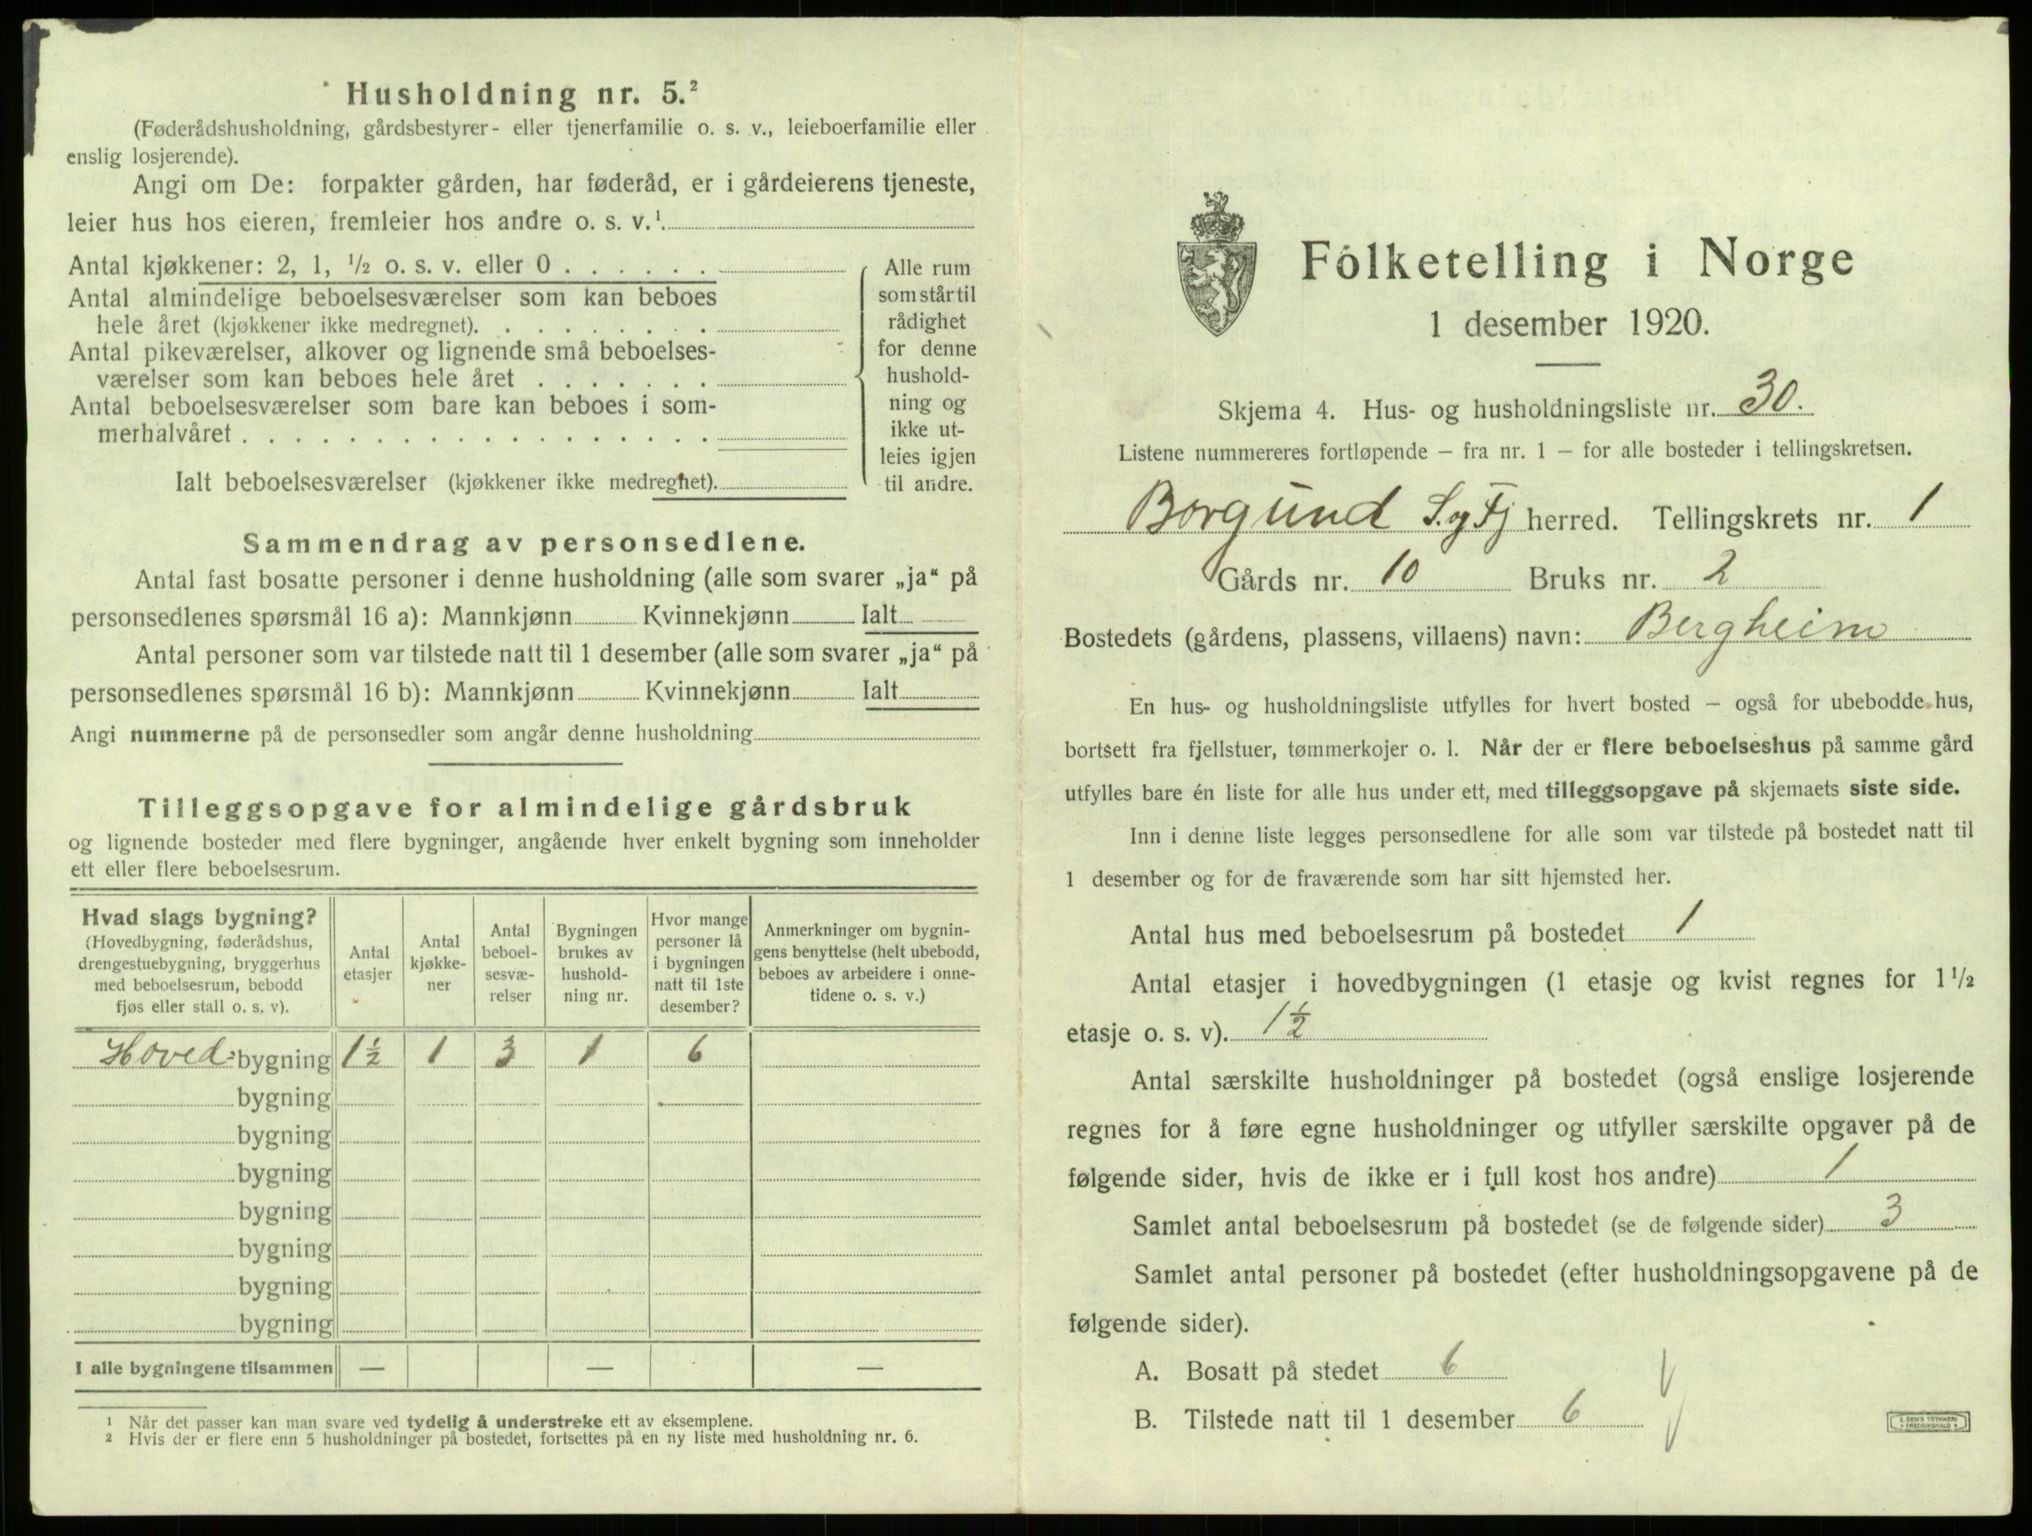 Husholdning nr. 5.²
(Føderådshusholdning, gårdsbestyrer- eller tjenerfamilie o. s. v., leieboerfamilie eller
enslig losjerende).
Angi om De: forpakter gården, har føderåd, er i gårdeierens tjeneste,
leier hus hos eieren, fremleier hos andre o. s. v.¹
Antal kjøkkener: 2, 1, ½ o. s. v. eller 0 . . . . . .
Antal almindelige beboelsesværelser som kan beboes
hele året (kjøkkener ikke medregnet). . . . . . . . .
Antal pikeværelser, alkover og lignende små beboelses-
værelser som kan beboes hele året . . . . . . .
Antal beboelsesværelser som bare kan beboes i som-
merhalvåret . . . . . . . . . . . . . . . . . .
Ialt beboelsesværelser (kjøkkener ikke medregnet).
Alle rum
som står til
rådighet
for denne
hushold-
ning og
ikke ut-
leies igjen
til andre.
Sammendrag av personsedlene.
Antal fast bosatte personer i denne husholdning (alle som svarer „ja“ på
personsedlenes spørsmål 16 a): Mannkjønn Kvinnekjønn Ialt
Antal personer som var tilstede natt til 1 desember (alle som svarer „ja“ på
personsedlenes spørsmål 16 b): Mannkjønn Kvinnekjønn Ialt
Angi nummerne på de personsedler som angår denne husholdning
Tilleggsopgave for almindelige gårdsbruk
og lignende bosteder med flere bygninger, angående hver enkelt bygning som inneholder
ett eller flere beboelsesrum.
Hvad slags bygning?
(Hovedbygning, føderådshus,
drengestuebygning, bryggerhus
med beboelsesrum, bebodd
fjøs eller stall o. s. v).
Antal
etasjer
Antal
kjøkke-
ner
Antal
beboel-
sesvæ-
relser
Bygningen
brukes av
hushold-
ning nr.
Hvor mange
personer lå
i bygningen
natt til 1ste
desember?
Anmerkninger om bygnin-
gens benyttelse (helt ubebodd,
beboes av arbeidere i onne-
tidene o. s. v.)
Hoved- bygning 1½ 1 3 1 6
bygning
bygning
bygning
bygning
bygning
bygning
bygning
I alle bygningene tilsammen — — —
¹ Når det passer kan man svare ved tydelig å understreke ett av eksemplene.
² Hvis der er flere enn 5 husholdninger på bostedet, fortsettes på en ny liste med husholdning nr. 6.
Folketelling i Norge
1 desember 1920.
Skjema 4. Hus- og husholdningsliste nr. 30.
Listene nummereres fortløpende – fra nr. 1 – for alle bosteder i tellingskretsen.
Borgund S. og Fj herred. Tellingskrets nr. 1
Gårds nr. 10 Bruks nr. 2
Bostedets (gårdens, plassens, villaens) navn: Bergheim
En hus- og husholdningsliste utfylles for hvert bosted – også for ubebodde hus,
bortsett fra fjellstuer, tømmerkojer o. l. Når der er flere beboelseshus på samme gård
utfylles bare én liste for alle hus under ett, med tilleggsopgave på skjemaets siste side.
Inn i denne liste legges personsedlene for alle som var tilstede på bostedet natt til
1 desember og for de fraværende som har sitt hjemsted her.
Antal hus med beboelsesrum på bostedet 1
Antal etasjer i hovedbygningen (1 etasje og kvist regnes for 1½
etasje o. s. v). 1½
Antal særskilte husholdninger på bostedet (også enslige losjerende
regnes for å føre egne husholdninger og utfyller særskilte opgaver på de
følgende sider, hvis de ikke er i full kost hos andre) 1
Samlet antal beboelsesrum på bostedet (se de følgende sider) 3
Samlet antal personer på bostedet (efter husholdningsopgavene på de
følgende sider).
A. Bosatt på stedet 6
B. Tilstede natt til 1 desember 6